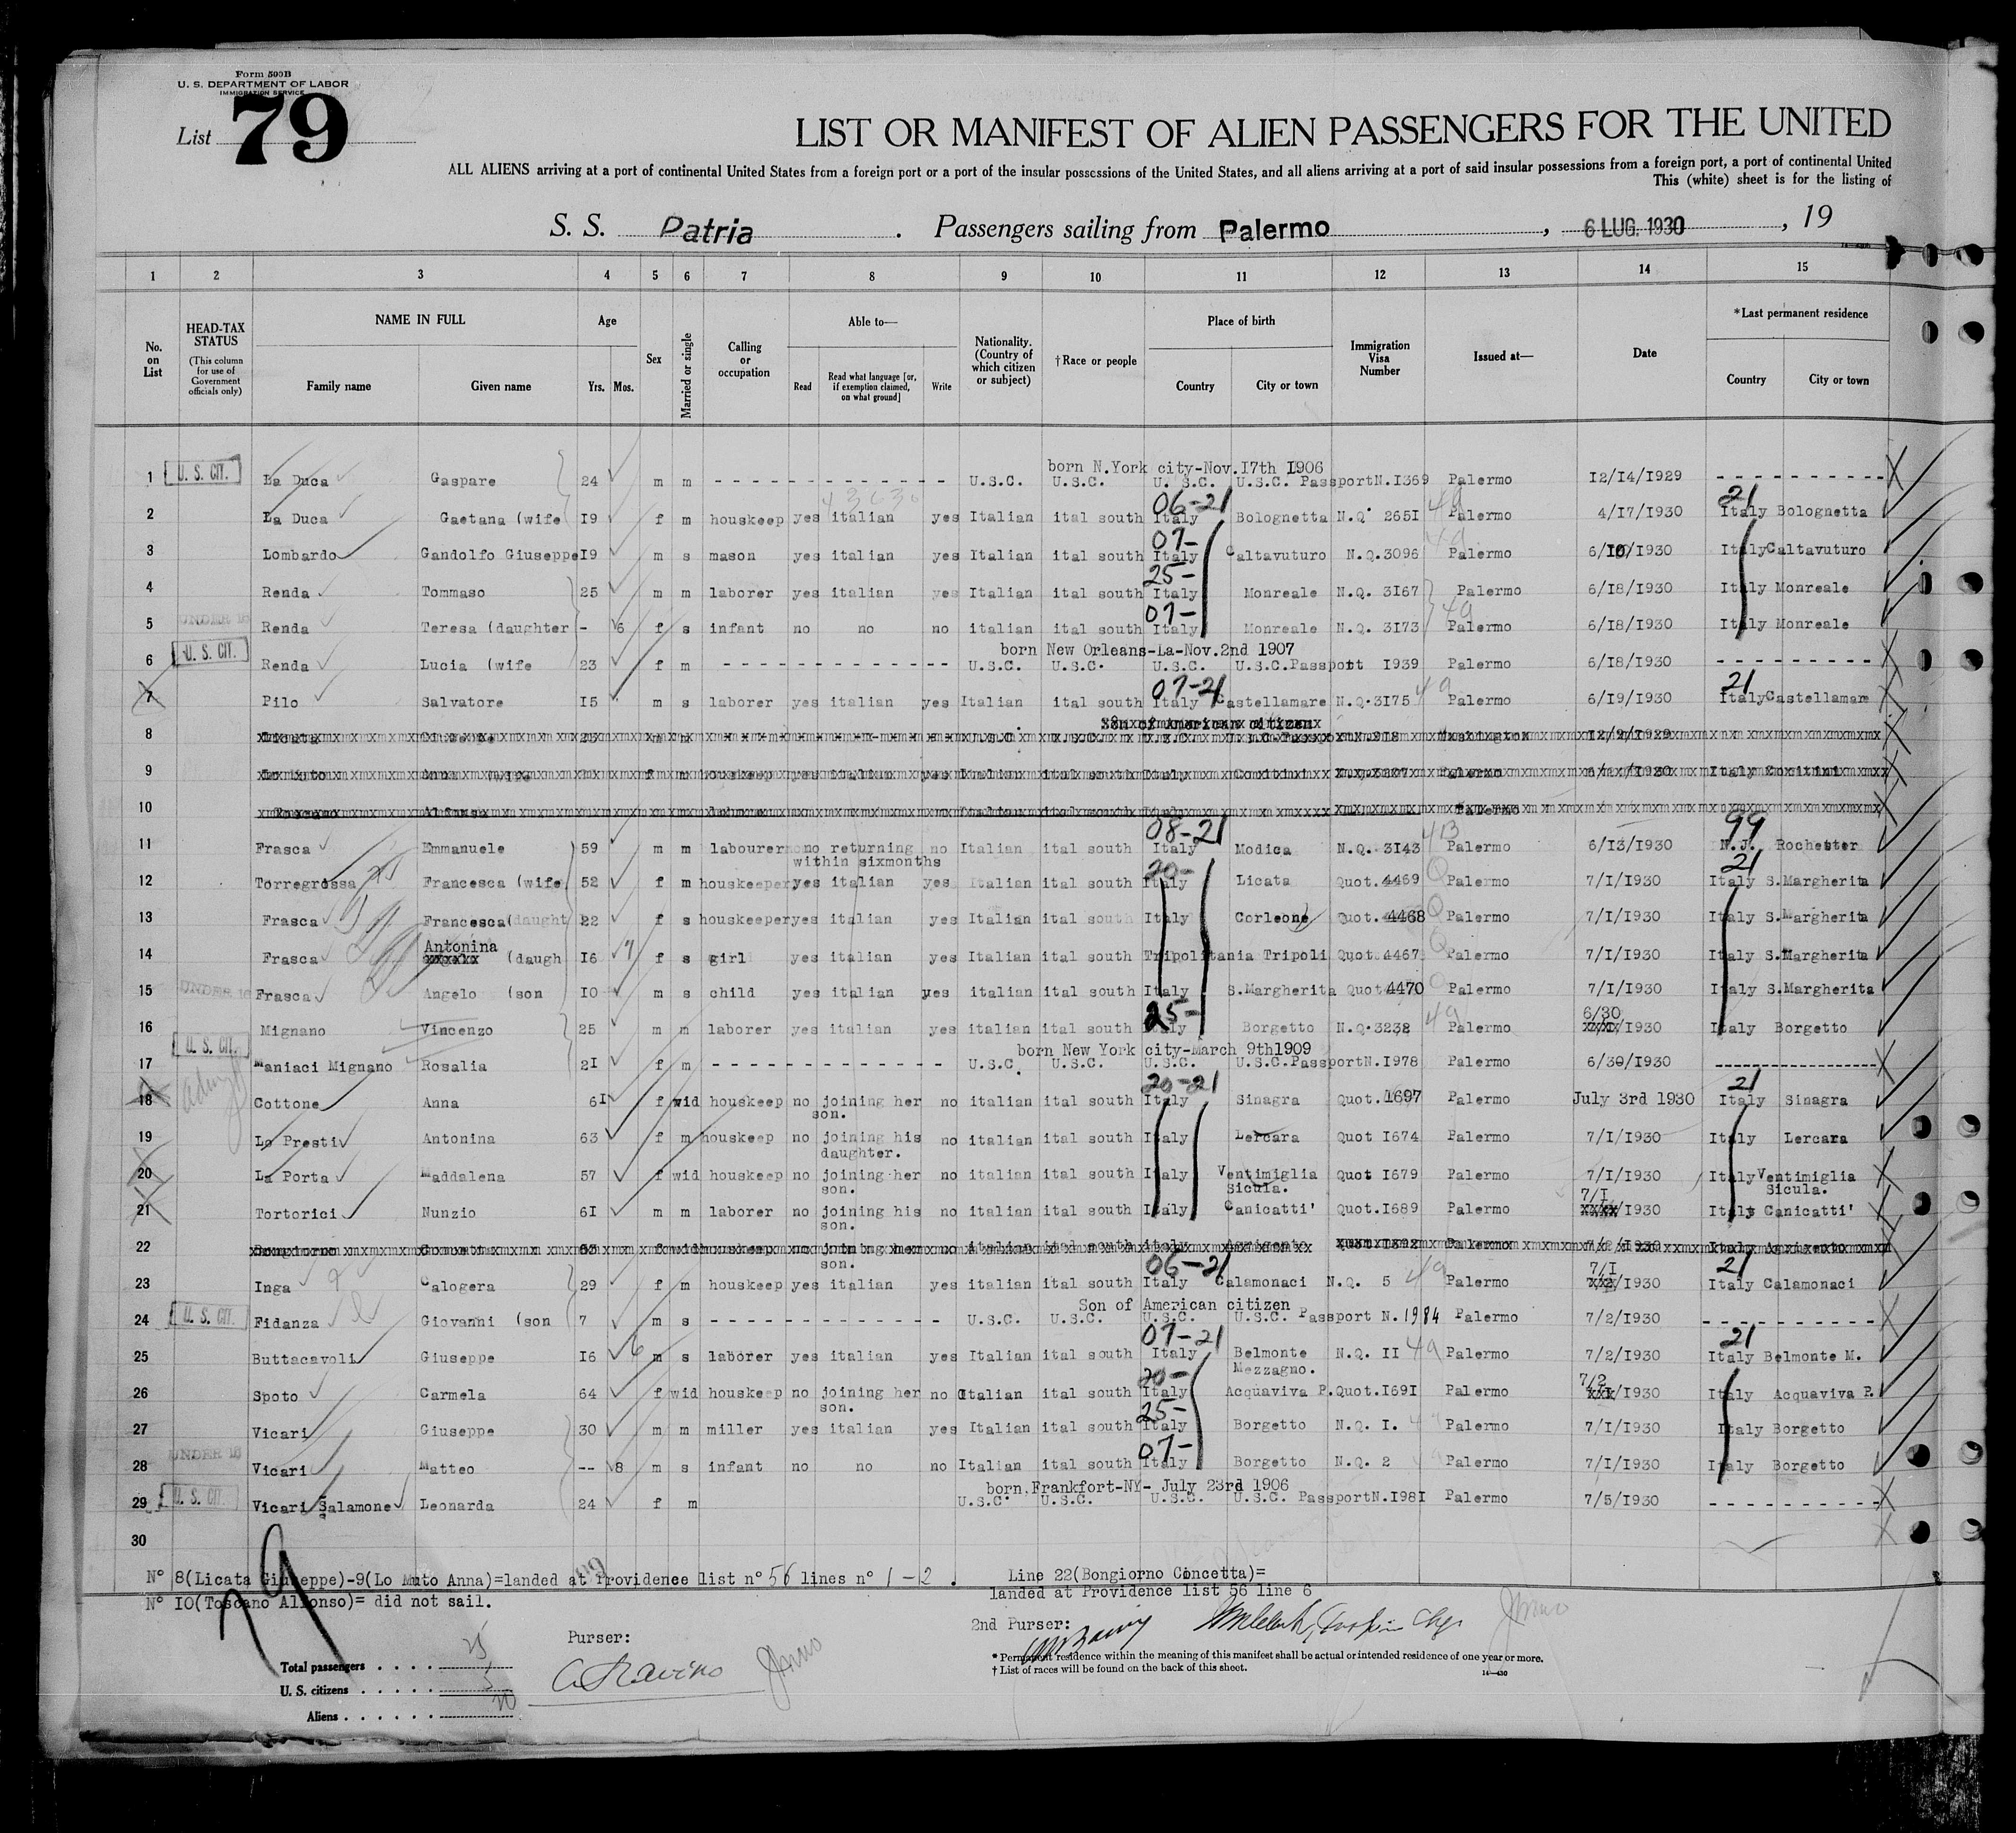 Form 500B
U. S. DEPARTMENT OF LABOR
IMMIGRATION SERVICE
List 79
LIST OR MANIFEST OF ALIEN PASSENGERS FOR THE UNITED
ALL ALIENS arriving at a port of continental United States from a foreign port or a port of the insular possessions of the United States, and all aliens arriving at a port of said insular possessions from a foreign port, a port of continental United
This (white) sheet is for the listing of
S. S. Patria . Passengers sailing from Palermo , 6 LUG. 1930 , 19
1 2 3 4 5 6 7 8 9 10 11 12 13 14 15
No. on List
HEAD-TAX STATUS (This column for use of Government officials only)
NAME IN FULL Family name Given name
Age Yrs. Mos.
Sex
Married or single
Calling or occupation
Able to— Read Read what language [or, if exemption claimed, on what ground] Write
Nationality. (Country of which citizen or subject)
†Race or people
Place of birth Country City or town
Immigration Visa Number
Issued at—
Date
*Last permanent residence Country City or town
born N.York city-Nov.I7th I906
1 U. S. CIT. La Duca Gaspare 24 m m U.S.C. U.S.C. U. S.C. U.S.C. PassportN.I369 Palermo I2/I4/I929
06-21 21
2 La Duca Gaetana (wife I9 f m houskeep yes italian yes Italian ital south Italy Bolognetta N.Q. 265I Palermo 4/I7/I930 Italy Bolognetta
07-
3 Lombardo Gandolfo Giuseppe I9 m s mason yes italian yes Italian ital south Italy Caltavuturo N.Q.3096 Palermo 6/I0/I930 Italy Caltavuturo
25-
4 Renda Tommaso 25 m m laborer yes italian yes Italian ital south Italy Monreale N.Q. 3I67 Palermo 6/I8/I930 Italy Monreale
07-
5 UNDER 16 Renda Teresa (daughter - 6 f s infant no no no italian ital south Italy Monreale N.Q. 3I73 Palermo 6/I8/I930 Italy Monreale
born New Orleans-La-Nov.2nd 1907
6 U. S. CIT. Renda Lucia (wife 23 f m U.S.C. U.S.C. U.S.C. U.S.C.Passport I939 Palermo 6/I8/I930
07-21 21
7 Pilo Salvatore I5 m s laborer yes italian yes Italian ital south Italy Castellamare N.Q.3I75 Palermo 6/I9/I930 Italy Castellamare
Son of American citizen
8 Licata
9 Lo Muto Anna f m houskeep yes italian yes Italian ital south Italy Palermo Italy
10 Toscano Alfonso Italian ital south Italy Palermo
08-21 99
11 Frasca Emmanuele 59 m m labourer no returning no Italian ital south Italy Modica N.Q. 3I43 Palermo 6/I3/I930 N.J. Rochester
within sixmonths
20- 21
12 Torregrossa Francesca (wife 52 f m houskeeper yes italian yes Italian ital south Italy Licata Quot.4469 Palermo 7/I/I930 Italy S.Margherita
13 Frasca Francesca(daught 22 f s houskeeper yes italian yes Italian ital south Italy Corleone Quot. 4468 Palermo 7/I/I930 Italy S.Margherita
Antonina
14 Frasca (daugh I6 f s girl yes italian yes Italian ital south Tripolitania Tripoli Quot.4467 Palermo 7/I/I930 Italy S.Margherita
15 UNDER 16 Frasca Angelo (son I0 m s child yes italian yes italian ital south Italy S.Margherita Quot 4470 Palermo 7/I/I930 Italy S.Margherita
25- 6/30
16 Mignano Vincenzo 25 m m laborer yes italian yes italian ital south Italy Borgetto N.Q.3238 Palermo /I930 Italy Borgetto
born New York city-March 9th1909
17 U. S. CIT. Maniaci Mignano Rosalia 2I f m U.S.C. U.S.C. U.S.C. U.S.C.PassportN.I978 Palermo 6/30/I930
20-21 21
18 Cottone Anna 6I f wid houskeep no joining her no italian ital south Italy Sinagra Quot.I697 Palermo July 3rd I930 Italy Sinagra
son.
19 Lo Presti Antonina 63 f m houskeep no joining his no italian ital south Italy Lercara Quot I674 Palermo 7/I/I930 Italy Lercara
daughter.
20 La Porta Maddalena 57 f wid houskeep no joining her no italian ital south Italy Ventimiglia Quot I679 Palermo 7/I/I930 Italy Ventimiglia
son. Sicula. Sicula.
7/I
21 Tortorici Nunzio 6I m m laborer no joining his no italian ital south Italy Canicatti' Quot.I689 Palermo /I930 Italy Canicatti'
son.
22 Bongiorno f wid houskeep no joining her no italian ital south Italy Palermo Italy
son.
06-21 7/I 21
23 Inga Calogera 29 f m houskeep yes italian yes italian ital south Italy Calamonaci N.Q. 5 Palermo /I930 Italy Calamonaci
Son of American citizen
24 U. S. CIT. Fidanza Giovanni (son 7 m s U.S.C. U.S.C. U.S.C. U.S.C. Passport N.1984 Palermo 7/2/I930
07-21 21
25 Buttacavoli Giuseppe I6 6 m s laborer yes italian yes Italian ital south Italy Belmonte N.Q. II Palermo 7/2/I930 Italy Belmonte M.
Mezzagno.
20- 7/2
26 Spoto Carmela 64 f wid houskeep no joining her no Italian ital south Italy Acquaviva P. Quot.I69I Palermo /I930 Italy Acquaviva P.
son.
25-
27 Vicari Giuseppe 30 m m miller yes italian yes Italian ital south Italy Borgetto N.Q. I. Palermo 7/I/I930 Italy Borgetto
07-
28 UNDER 16 Vicari Matteo -- 8 m s infant no no no Italian ital south Italy Borgetto N.Q. 2 Palermo 7/I/I930 Italy Borgetto
born.Frankfort-NY- July 23rd I906
29 U. S. CIT. Vicari Salamone Leonarda 24 f m U.S.C. U.S.C. U.S.C. U.S.C. PassportN.I98I Palermo 7/5/I930
30
N° 8(Licata Giuseppe)-9(Lo Muto Anna)=landed at Providence list n° 56 lines n° 1-2 .
Line 22(Bongiorno Concetta)=
landed at Providence list 56 line 6
N° I0(Toscano Alfonso)= did not sail.
Purser:
2nd Purser:
* Permanent residence within the meaning of this manifest shall be actual or intended residence of one year or more.
† List of races will be found on the back of this sheet.
Total passengers . . . . 25
U. S. citizens . . . . . 5
Aliens . . . . . . 20